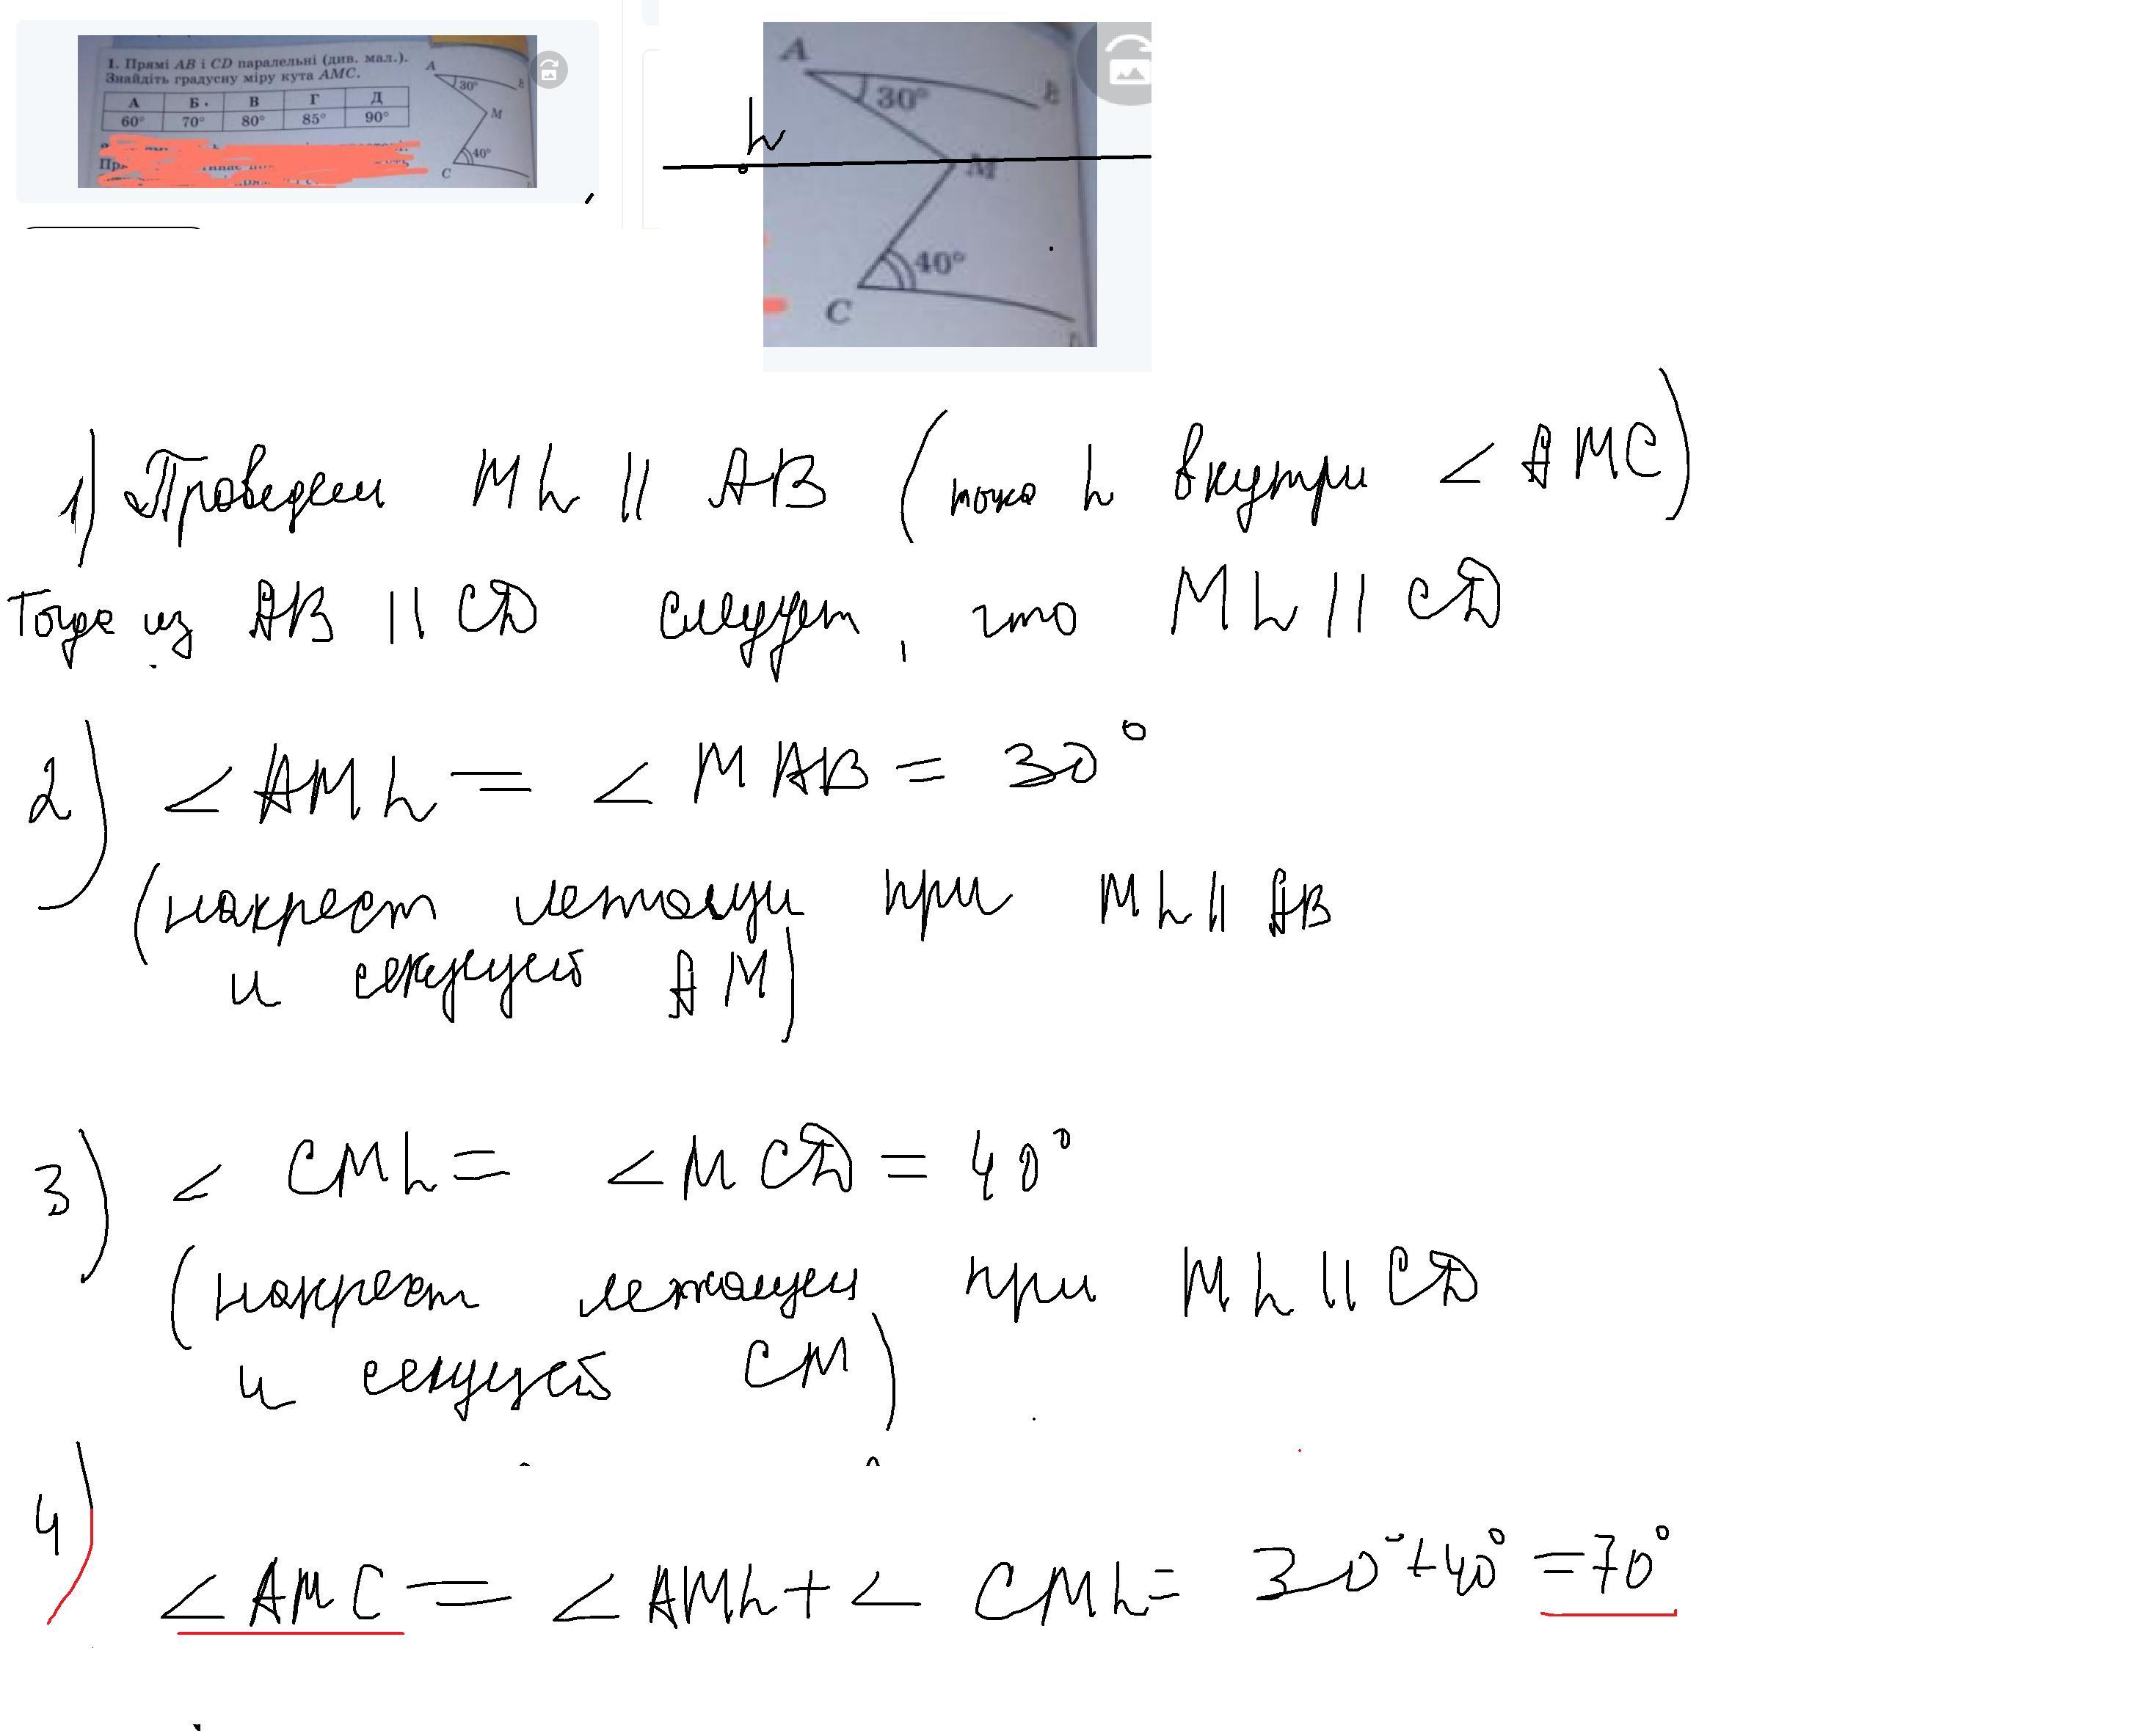 1. Прямі AB і CD паралельні (див. мал.).
Знайдіть градусну міру кута AMC.
А Б В Г Д
60° 70° 80° 85° 90°
A
30°
M
40°
C
A
30°
B
h
M
40°
C
1) Проведем Mh || AB (точка h внутри ∠AMC)
Тогда из AB || CD следует, что Mh || CD
2) ∠AMh = ∠MAB = 30°
(накрест лежащи при Mh || AB
и секущей AM)
3) ∠CMh = ∠MCD = 40°
(накрест лежащи при Mh || CD
и секущей CM)
4)
∠AMC = ∠AMh + ∠CMh = 30° + 40° = 70°